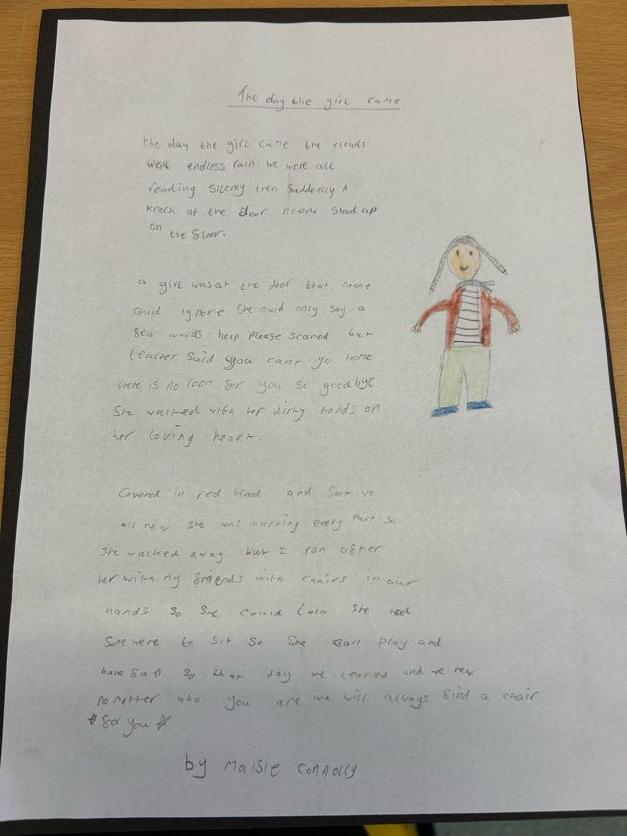 The day the girl came
the day the girl came the clouds
wept endless rain we were all
reading silenly then suddenly A
knock at the door noone stood up
on the floor.
a girl was at the door that noone
could ignore she could only say a
few words help please scared but
teacher said you cant go home
there is no room for you so goodbye
She walked with her dirty hands on
her loving heart.
Covered in red blood and
all new she was hurting every part so
She walked away but I ran after
her with my friends with chairs in our
hands so she could she had
to sit so she can play and
have fun so that day we learned and we new
no matter who you are we will always find a chair
for you
by Maisie Connolly